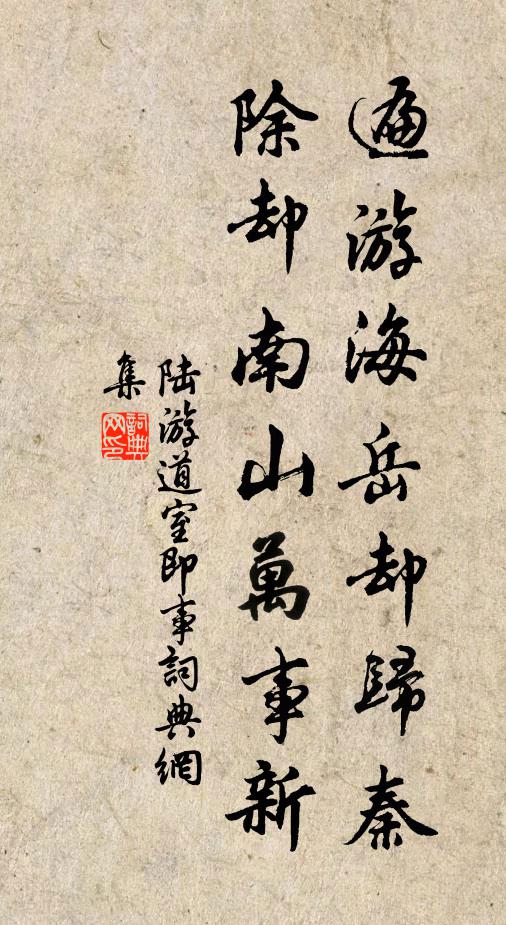 遍游海岳却歸秦
除却南山萬事新
陆游道室即事詞典網
集
詞典网印